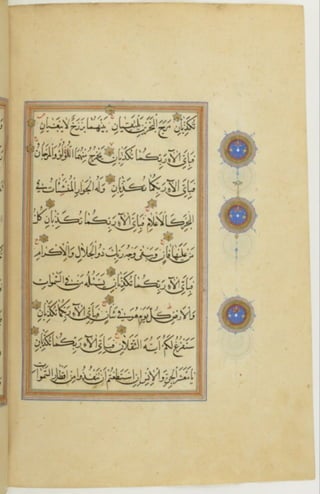 تكذبان مرج البحرين يلتقيان بينهما برزخ لا يبغيان
فبأي آلاء ربكما تكذبان يخرج منهما اللؤلؤ والمرجان
فبأي آلاء ربكما تكذبان وله الجوار المنشآت في
البحر كالأعلام فبأي آلاء ربكما تكذبان كل
من عليها فان ويبقى وجه ربك ذو الجلال والإكرام
فبأي آلاء ربكما تكذبان يسئله من في السموات
والأرض كل يوم هو في شأن فبأي آلاء ربكما تكذبان
سنفرغ لكم أيه الثقلان فبأي آلاء ربكما تكذبان
يا معشر الجن والإنس إن استطعتم أن تنفذوا من أقطار السموات